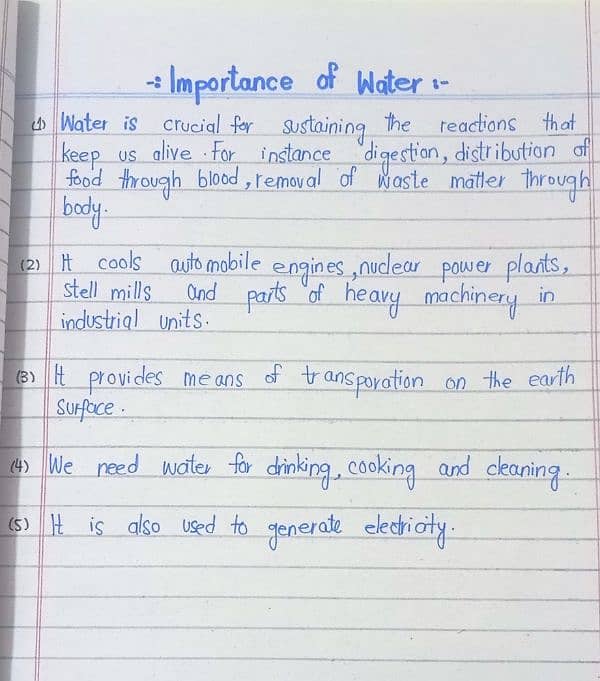 -: Importance of Water :-
(1) Water is crucial for sustaining the reactions that
keep us alive. For instance digestion, distribution of
food through blood, removal of waste matter through
body.
(2) It cools automobile engines, nuclear power plants,
stell mills and parts of heavy machinery in
industrial units.
(3) It provides means of transporation on the earth
surface.
(4) We need water for drinking, cooking and cleaning.
(5) It is also used to generate electricity.